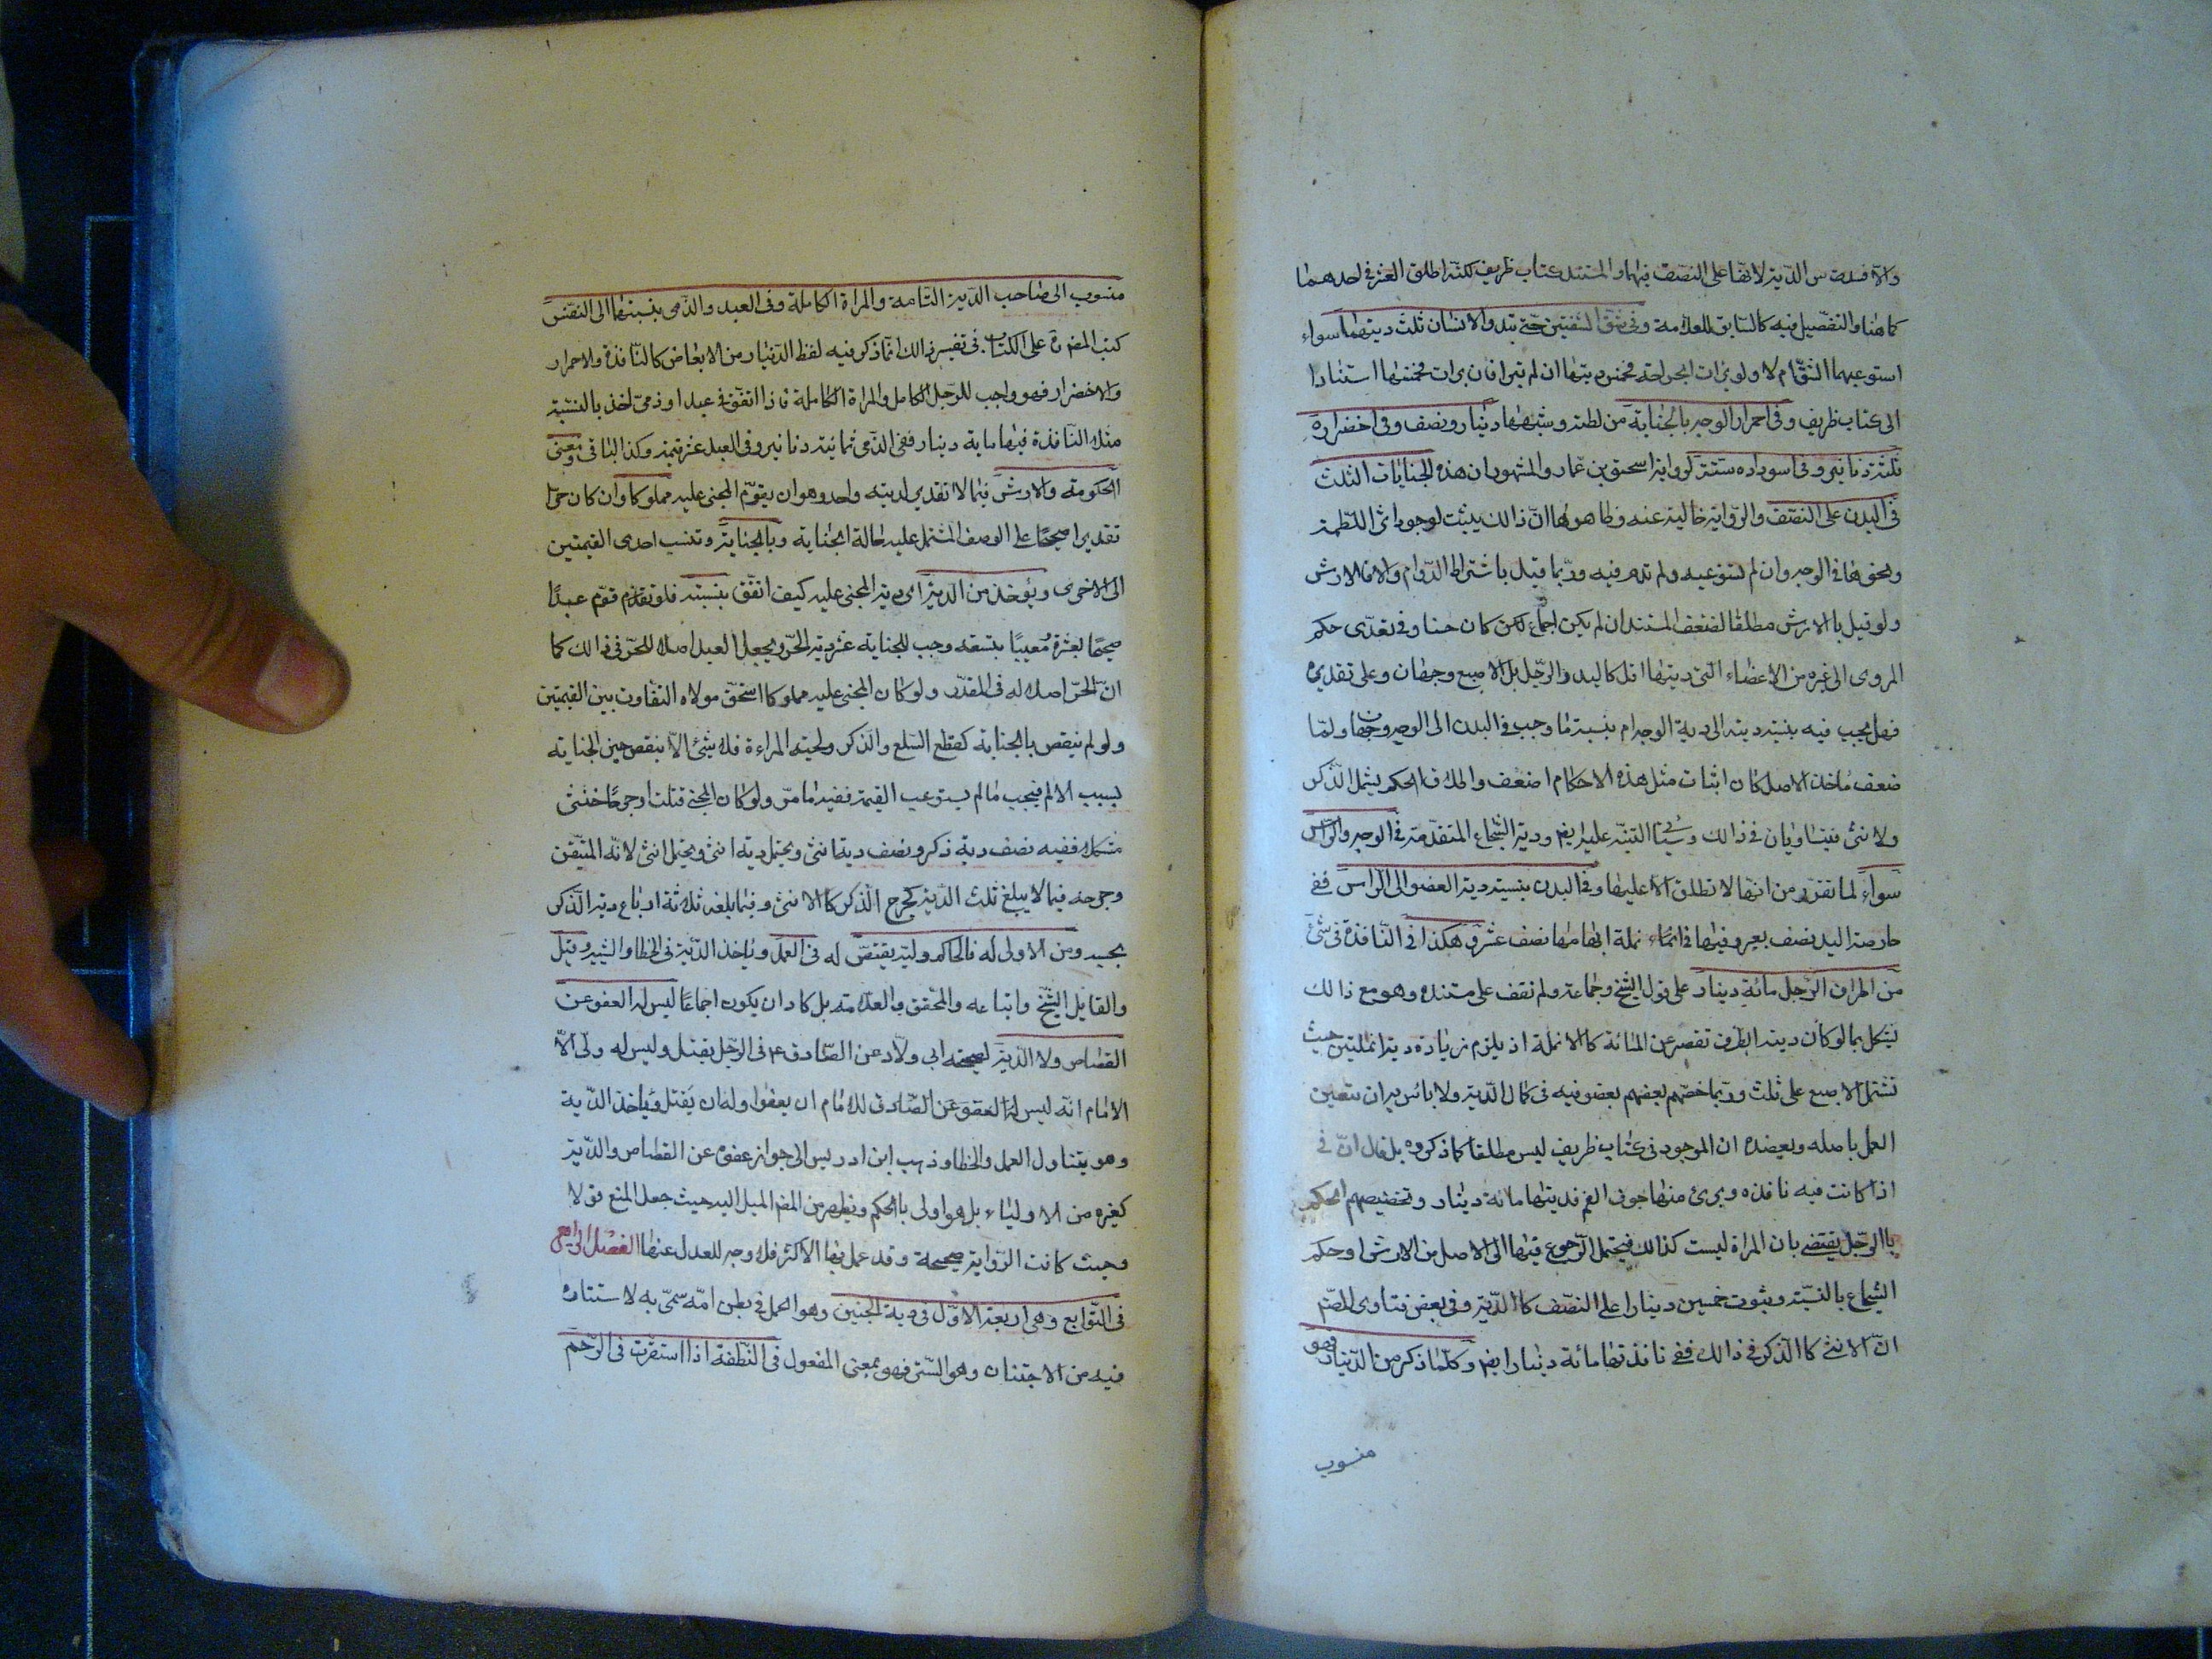 والا فسدس الدية لانها على النصف فيهما والمستند كتاب ظريف لكنه اطلق العشر في احدهما
كما هنا والتفصيل فيه كالسابق للعلامة وفي شق الشفتين حتى تبدو الاسنان ثلث ديتهما سواء
استوعبهما الشق ام لا ولو برات الجراحة فخمس ديتهما ان لم تبرا فان برات فخمسها استنادا
الى كتاب ظريف وفي احمرار الوجه بالجناية من لطمة وشبهها دينار ونصف وفي اخضراره
ثلثة دنانير وفي اسوداده ستة لرواية اسحق بن عمار والمشهور ان هذه الجنايات الثلث
في البدن على النصف والرواية خالية عنه وظاهرها ان ذالك يثبت لوجود اثر اللطمة
ونحوها في الوجه وان لم يستوعبه ولم تدم فيه وربما قيل باشتراط الدوام والا فالارش
ولو قيل بالارش مطلقا لضعف المستند ان لم يكن اجماع لكن كان حسنا وفي تعدى حكم
المروى الى غيره من الاعضاء التي ديتها اقل كاليد والرجل بل الاصبع وجهان وعلى تقديره
فهل يجب فيه بنسبة ديته الى دية الوجه ام بنسبة ما وجب في البدن الى الوجه وجهان ولما
ضعف ماخذ الاصل كان اثبات مثل هذه الاحكام اضعف واطلاق الحكم يشمل الذكر
والانثى فيتساويان في ذالك وسياتي التنبيه عليه ايضا ودية الشجاج المتقدمة في الوجه والراس
سواء لما تقرر من انها لا تطلق الا عليهما وفي البدن بنسبة دية العضو الى الراس ففي
حارصة اليد نصف بعير وفيها في انملة ابهامها نصف عشره وهكذا في النافذة في شئ
من اطراف الرجل مائة دينار على قول الشيخ وجماعة ولم نقف على مستنده وهو مع ذالك
يشكل بما لو كان دية الطرف تقصر عن المائة كالانملة اذ يلزم زيادة دية انملتين حيث
تشتمل الاصبع على ثلث وربما خصهم بعضهم بعضو فيه كمال الدية ولا بأس به ان تعين
العمل باصله ويعضده ان الموجود في كتاب ظريف ليس مطلقا كما ذكروه بل قال ان في
اذا كانت فيه نافذه ويرى منها جوف الفم فديتها مائة دينار وتخصيصهم الحكم
بالرجل يقتضى بان المراة ليست كذالك فيحتمل الرجوع فيها الى الاصل من الارش او حكم
الشجاج بالنسبة وبثبوت خمسين دينارا على النصف كالدية وفي بعض فتاوى المصنف
ان الانثى كالذكر في ذالك ففي نافذتها مائة دينار ايضا وكلما ذكر من الدينار فهو
منسوب
منسوب الى صاحب الدية التامة والمراة الكاملة وفي العبد والذمى بنسبتها الى النفس
كتب المص ره على الكتاب في تفسير ذالك انما ذكر فيه لفظ الدينار من الابعاض كالنافذة والاحمرار
والاخضرار فهو واجب للرجل الكامل والمراة الكاملة فاذا اتفق في عبد او ذمى اخذ بالنسبة
مثلا النافذة فيها ماية دينار ففي الذمى ثمانية دنانير وفي العبد عشر قيمته وكذا الباقى ومعنى
الحكومة والارش فيما لا تقدير لديته واحد وهو ان يقوم المجنى عليه مملوكا وان كان حرا
تقديرا صحيحا على الوصف المشتمل عليه حالة الجناية وبالجناية وتنسب احدى القيمتين
الى الاخرى ويؤخذ من الدية اى دية المجنى عليه كيف اتفق بنسبته فلو تقدم قوم عبدا
صحيحا بعشرة ومعيبا بتسعة وجب للجناية عشر دية الحر ويجعل العبد اصلا للحر في ذالك كما
ان الحر اصل له في المقدر ولو كان المجنى عليه مملوكا استحق مولاه التفاوت بين القيمتين
ولو لم ينقص بالجناية كقطع السلع والذكر ولحية المراءة فلا شئ الا ينقص حين الجناية
بسبب الالم فيجب ما لم يستوعب القيمة ففيه ما مر ولو كان المجني قتلا او جرحا خنثى
مشكلا ففيه نصف دية ذكر ونصف دية انثى ويحتمل دية انثى ويحتمل انثى لانه المتيقن
وجرحه فيما لا يبلغ ثلث الدية كجرح الذكر كالانثى وفيما بلغه ثلاثة ارباع دية الذكر
بحسبه ومن لا ولى له فالحاكم وليه يقتص له في العمد وياخذ الدية في الخطا والشبيه وقيل
والقايل الشيخ واتباعه والمحقق والعلامة بل كاد ان يكون اجماعا ليس له العفو عن
القصاص ولا الدية لصحيحة ابى ولاد عن الصادق ع في الرجل يقتل وليس له ولى الا
الامام انه ليس له العفو عن الصادق للامام ان يعفوا وله ان يقتل وياخذ الدية
وهو يتناول العمد والخطا وذهب ابن ادريس الى جواز عفوه عن القصاص والدية
كغيره من الاولياء بل هو اولى بالحكم ويظهر من المص الميل اليه حيث جعل المنع قولا
وحيث كانت الرواية صحيحة وقد عمل بها الاكثر فلا وجه للعدل عنها الفصل الرابع
في التوابع وهى اربعة الاول في دية الجنين وهو الحمل في بطن امه سمى به لاستتاره
فيه من الاجتنان وهو الستر فهو بمعنى المفعول في النطفة اذا استقرت في الرحم